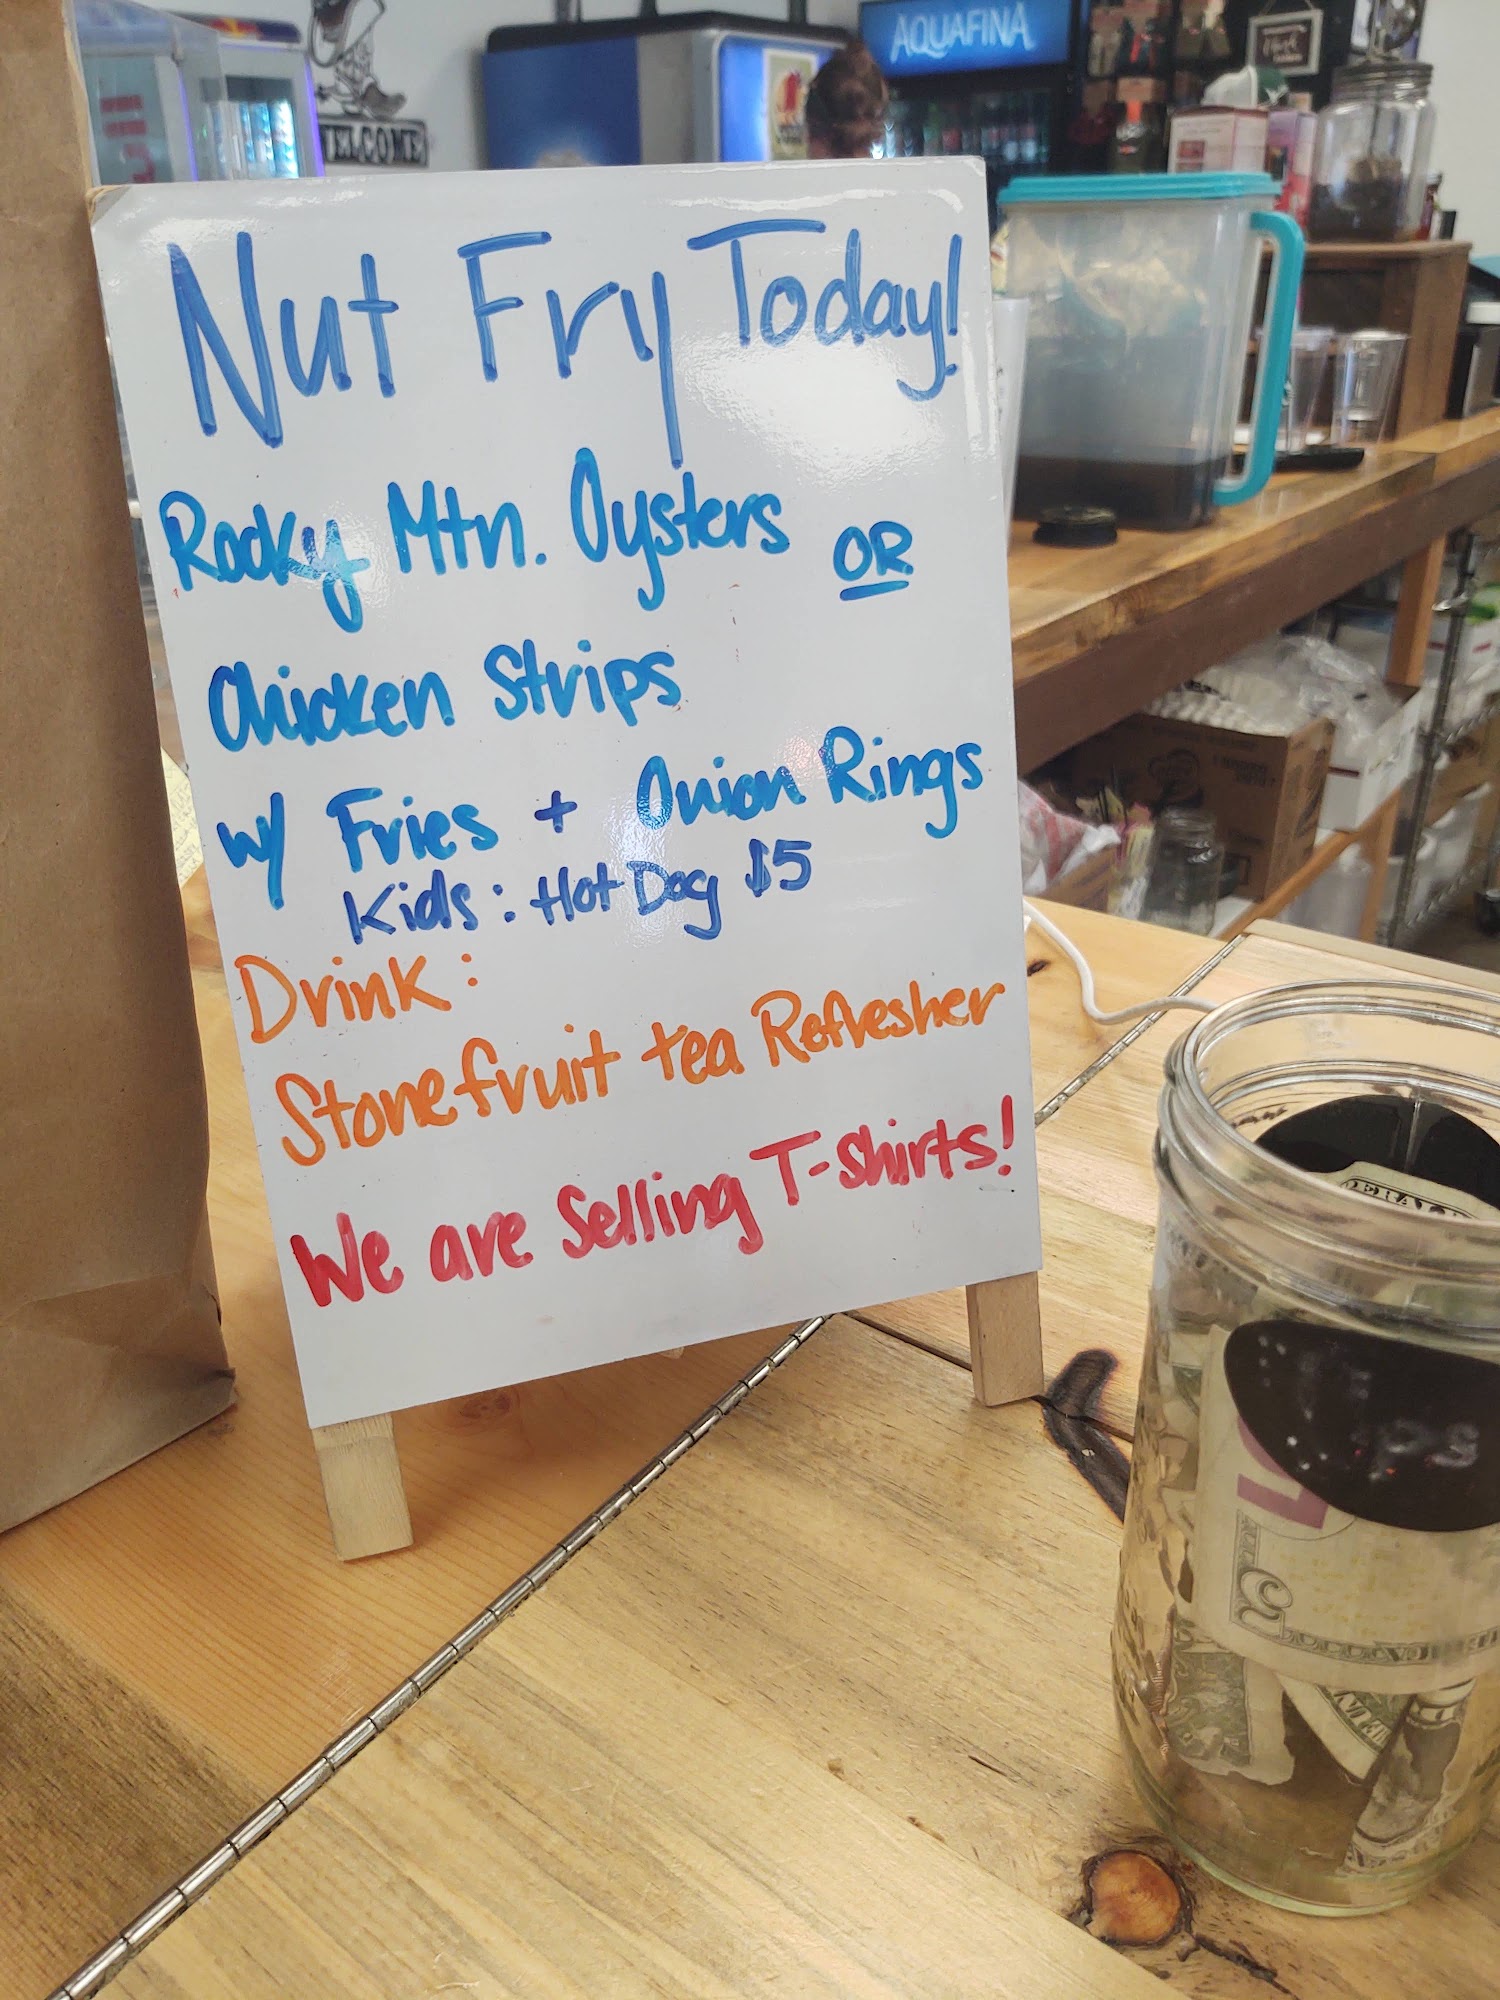 AQUAFINA
WELCOME
Nut Fry Today!
Rocky Mtn. Oysters OR
Chicken Strips
w/ Fries + Onion Rings
Kids: Hot Dog $5
Drink:
Stonefruit tea Refresher
We are Selling T-Shirts!